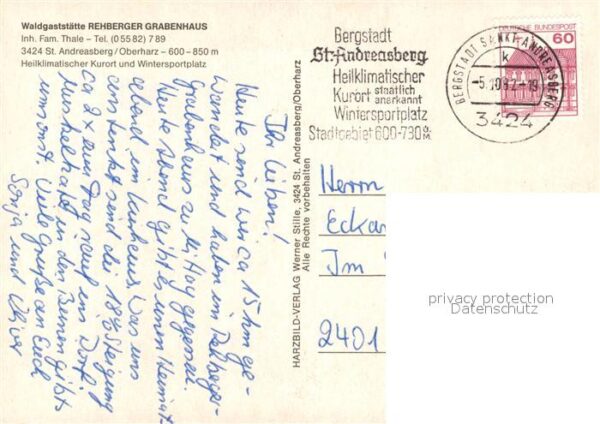 Waldgaststätte REHBERGER GRABENHAUS
Inh. Fam. Thale – Tel. (0 55 82) 7 89
3424 St. Andreasberg / Oberharz – 600 – 850 m
Heilklimatischer Kurort und Wintersportplatz
Ihr Lieben!
Heute sind wir ca 15 km ge-
wandert und haben im Rehberger-
Grabenhaus zu Mittag gegessen.
Heute Abend gibt es einen Heimat-
abend im Kurhaus. Was uns
sind die 18% Steigung
ca 2 x am Tag rauf ins Dorf.
Muskelkater in den Beinen gibts
umsonst. Viele Grüße an Euch
Sonja und
HARZBILD-VERLAG Werner Stille, 3424 St. Andreasberg/Oberharz
Alle Rechte vorbehalten
Bergstadt
St. Andreasberg
Heilklimatischer
Kurort staatlich anerkannt
Wintersportplatz
Stadtgebiet 600-730 ü. M.
DEUTSCHE BUNDESPOST
60
BERGSTADT SANKT ANDREASBERG
k
-5.10.87-19
3424
Herrn
Eckar
Im
2401
privacy protection
Datenschutz